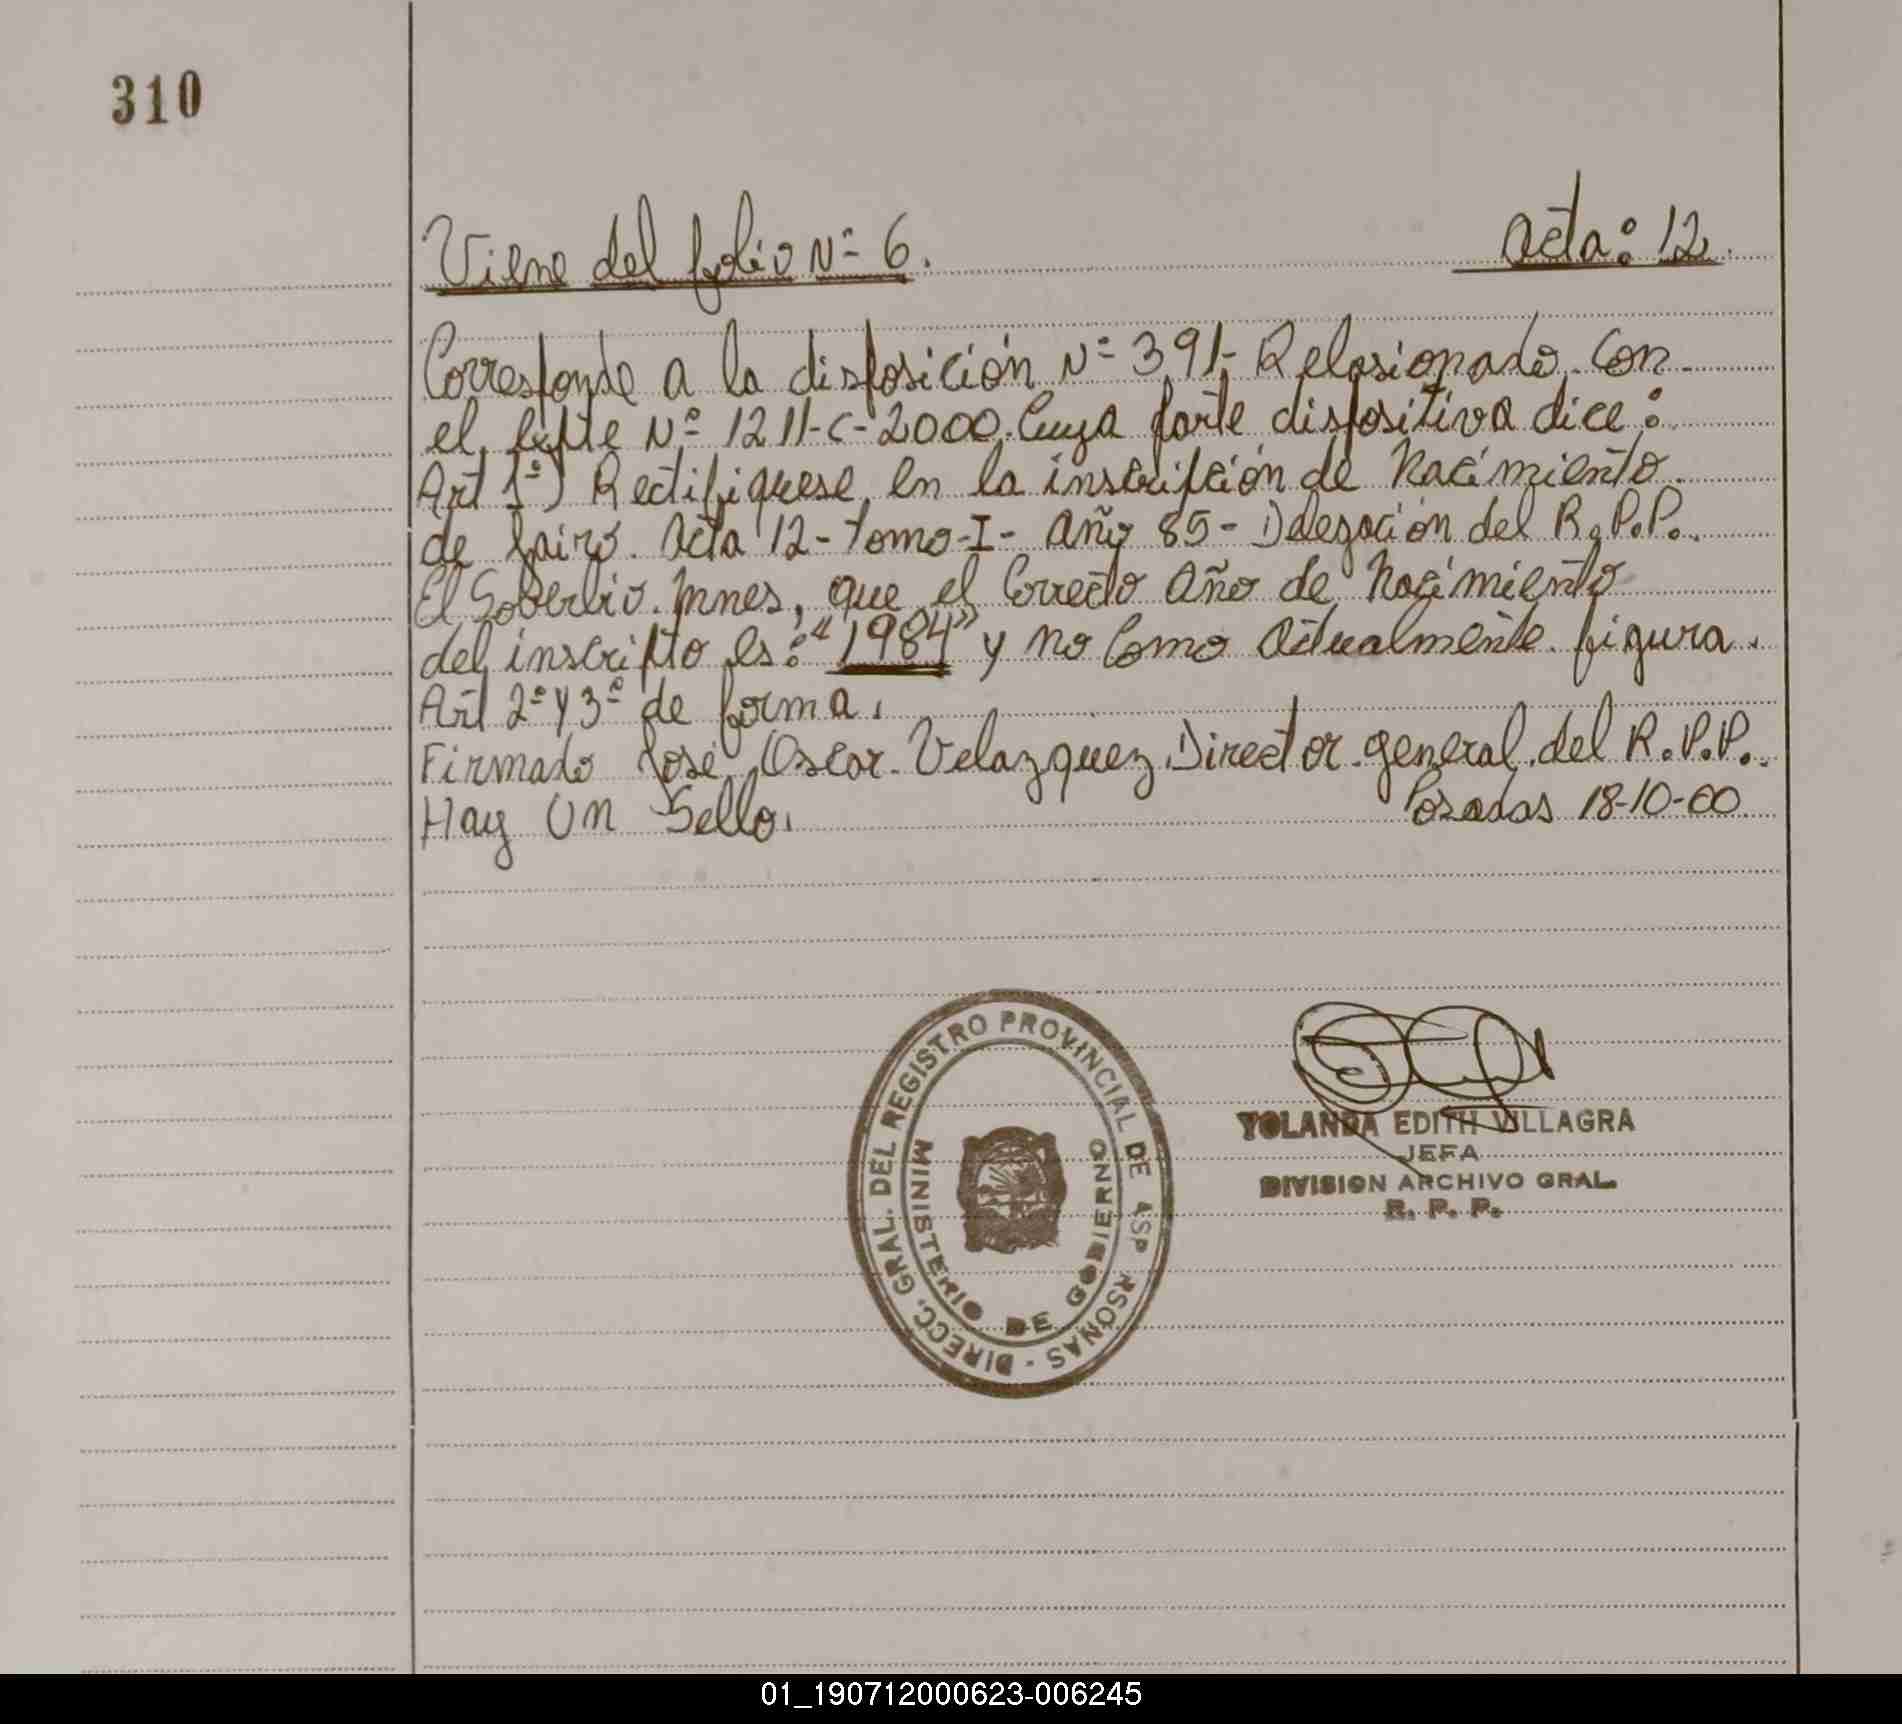 310
Viene del folio Nº 6.
Acta: 12.
Corresponde a la disposición Nº 391- Relasionado Con
el Expte Nº 1211-C-2000. Cuya parte dispositiva dice:
Art 1º) Rectifiquese en la inscripción de Nacimiento
de Jairo. Acta 12- Tomo-I- Año 85- Delegación del R.P.P.
El Soberbio. Mnes, que el Correcto Año de Nacimiento
del inscripto es: "1984" y no Como actualmente figura.
Art 2º y 3º de forma.
Firmado José Oscar Velazquez Director general del R.P.P.
Hay Un Sello.
Posadas 18-10-00
DIRECC. GRAL. DEL REGISTRO PROVINCIAL DE
MINISTERIO DE GOBIERNO
YOLANDA EDITH VILLAGRA
JEFA
DIVISION ARCHIVO GRAL.
R. P. P.
01_190712000623-006245